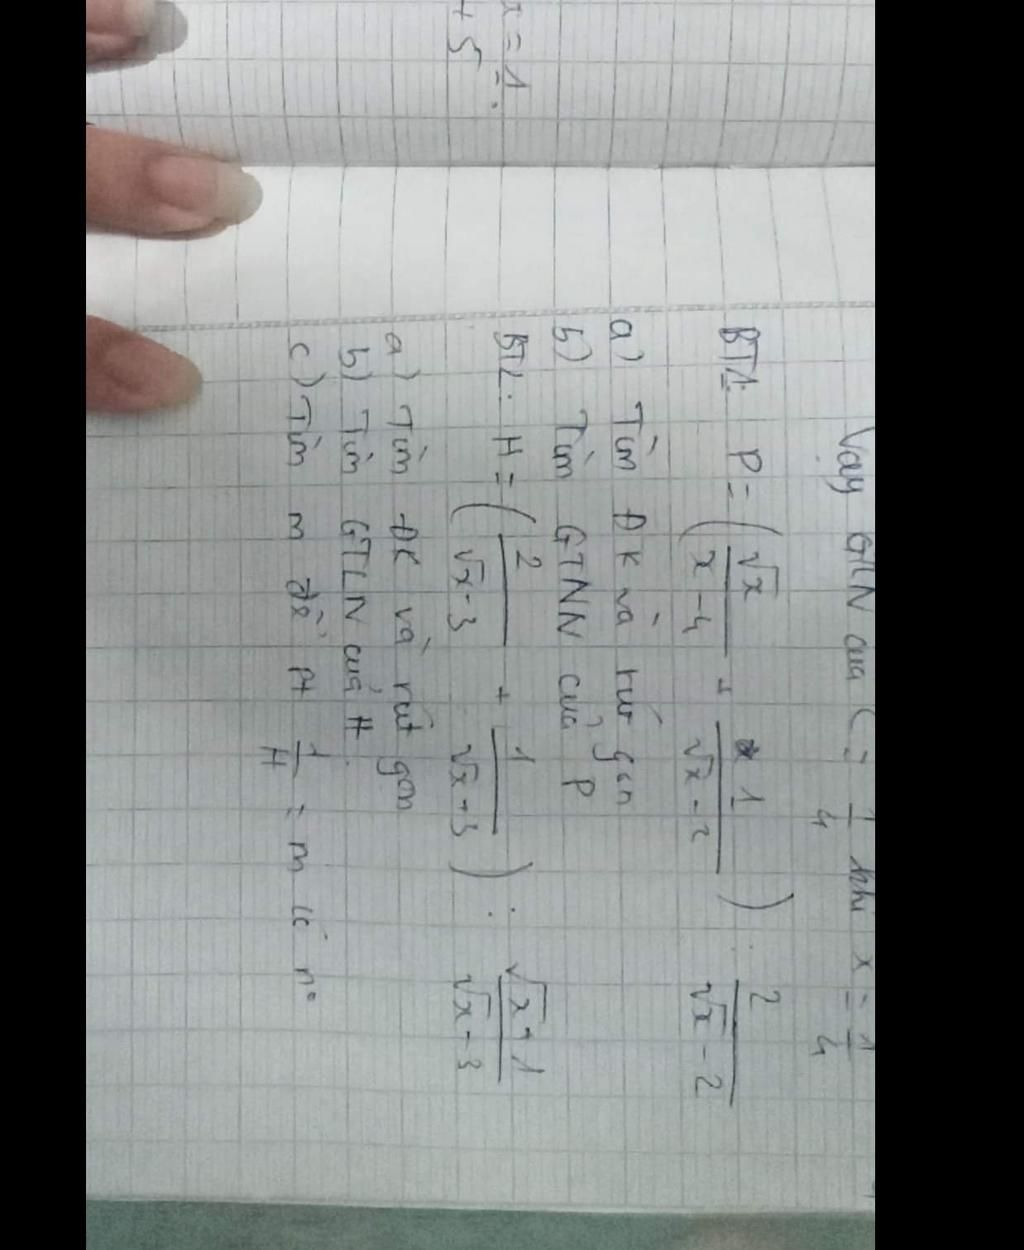 x = 1.
+ 5
Vậy GTLN của C = 1/4 khi x = 1/4
BT1: P = (√x/(x-4) + 1/(√x-2)) : 2/(√x-2)
a) Tìm ĐK và rút gọn
b) Tìm GTNN của P
BT2: H = (2/(√x-3) + 1/(√x+3)) : (√x+1)/(√x-3)
a) Tìm ĐK và rút gọn
b) Tìm GTLN của H.
c) Tìm m để pt 1/H = m có n°